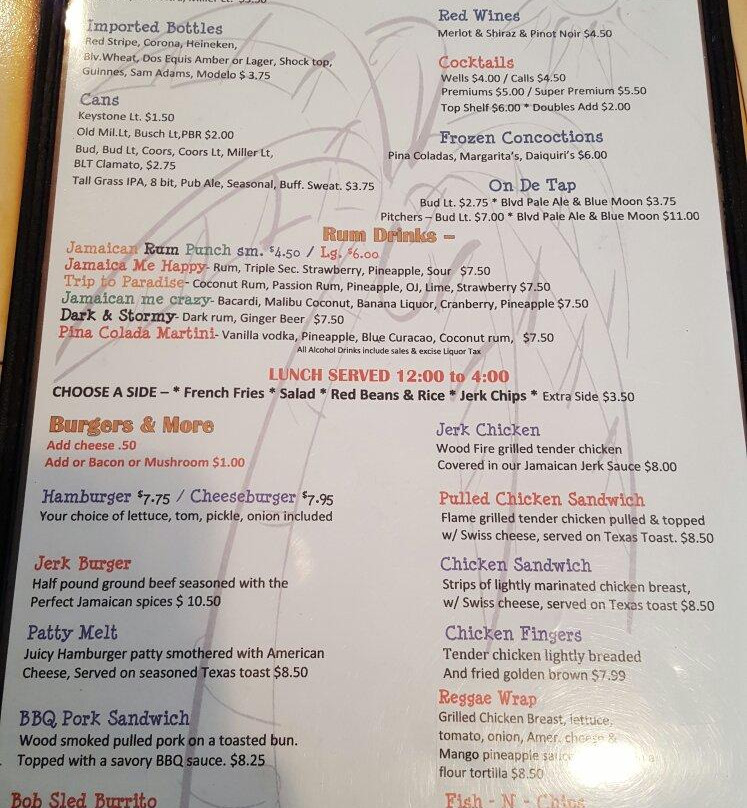 Imported Bottles
Red Stripe, Corona, Heineken,
Blv.Wheat, Dos Equis Amber or Lager, Shock top,
Guinnes, Sam Adams, Modelo $ 3.75
Cans
Keystone Lt. $1.50
Old Mil.Lt, Busch Lt,PBR $2.00
Bud, Bud Lt, Coors, Coors Lt, Miller Lt,
BLT Clamato, $2.75
Tall Grass IPA, 8 bit, Pub Ale, Seasonal, Buff. Sweat. $3.75
Red Wines
Merlot & Shiraz & Pinot Noir $4.50
Cocktails
Wells $4.00 / Calls $4.50
Premiums $5.00 / Super Premium $5.50
Top Shelf $6.00 * Doubles Add $2.00
Frozen Concoctions
Pina Coladas, Margarita's, Daiquiri's $6.00
On De Tap
Bud Lt. $2.75 * Blvd Pale Ale & Blue Moon $3.75
Pitchers – Bud Lt. $7.00 * Blvd Pale Ale & Blue Moon $11.00
Rum Drinks –
Jamaican Rum Punch sm. $4.50 / Lg. $6.00
Jamaica Me Happy- Rum, Triple Sec. Strawberry, Pineapple, Sour $7.50
Trip to Paradise- Coconut Rum, Passion Rum, Pineapple, OJ, Lime, Strawberry $7.50
Jamaican me crazy- Bacardi, Malibu Coconut, Banana Liquor, Cranberry, Pineapple $7.50
Dark & Stormy- Dark rum, Ginger Beer $7.50
Pina Colada Martini- Vanilla vodka, Pineapple, Blue Curacao, Coconut rum, $7.50
All Alcohol Drinks include sales & excise Liquor Tax
LUNCH SERVED 12:00 to 4:00
CHOOSE A SIDE – * French Fries * Salad * Red Beans & Rice * Jerk Chips * Extra Side $3.50
Burgers & More
Add cheese .50
Add or Bacon or Mushroom $1.00
Hamburger $7.75 / Cheeseburger $7.95
Your choice of lettuce, tom, pickle, onion included
Jerk Burger
Half pound ground beef seasoned with the
Perfect Jamaican spices $ 10.50
Patty Melt
Juicy Hamburger patty smothered with American
Cheese, Served on seasoned Texas toast $8.50
BBQ Pork Sandwich
Wood smoked pulled pork on a toasted bun.
Topped with a savory BBQ sauce. $8.25
Bob Sled Burrito
Jerk Chicken
Wood Fire grilled tender chicken
Covered in our Jamaican Jerk Sauce $8.00
Pulled Chicken Sandwich
Flame grilled tender chicken pulled & topped
w/ Swiss cheese, served on Texas Toast. $8.50
Chicken Sandwich
Strips of lightly marinated chicken breast,
w/ Swiss cheese, served on Texas toast $8.50
Chicken Fingers
Tender chicken lightly breaded
And fried golden brown $7.99
Reggae Wrap
Grilled Chicken Breast, lettuce,
tomato, onion, Amer. cheese &
Mango pineapple sauce
flour tortilla $8.50
Fish - N - Chips